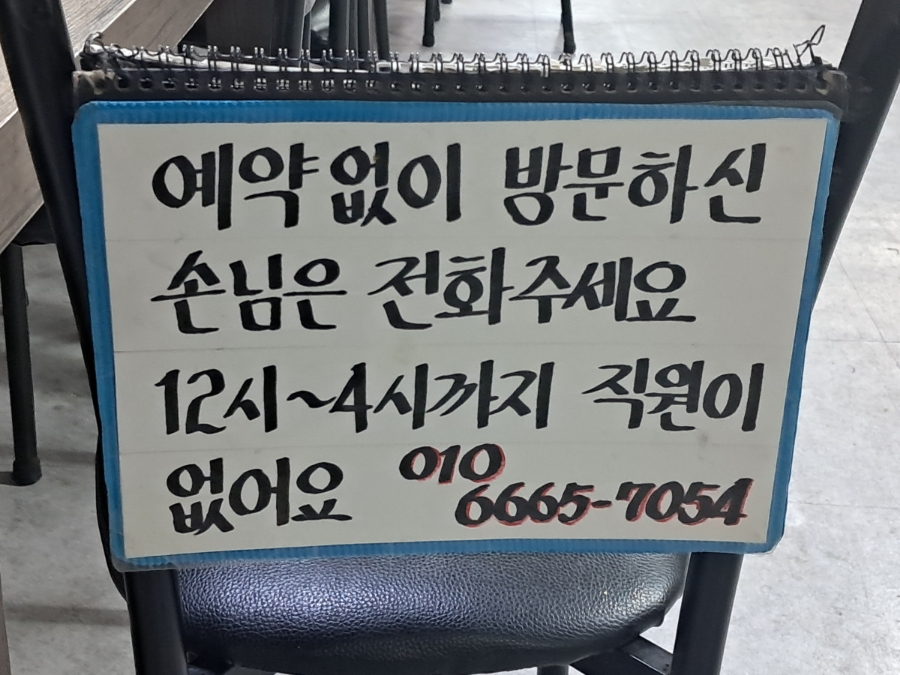 예약없이 방문하신
손님은 전화주세요
12시~4시까지 직원이
없어요 010
6665-7054